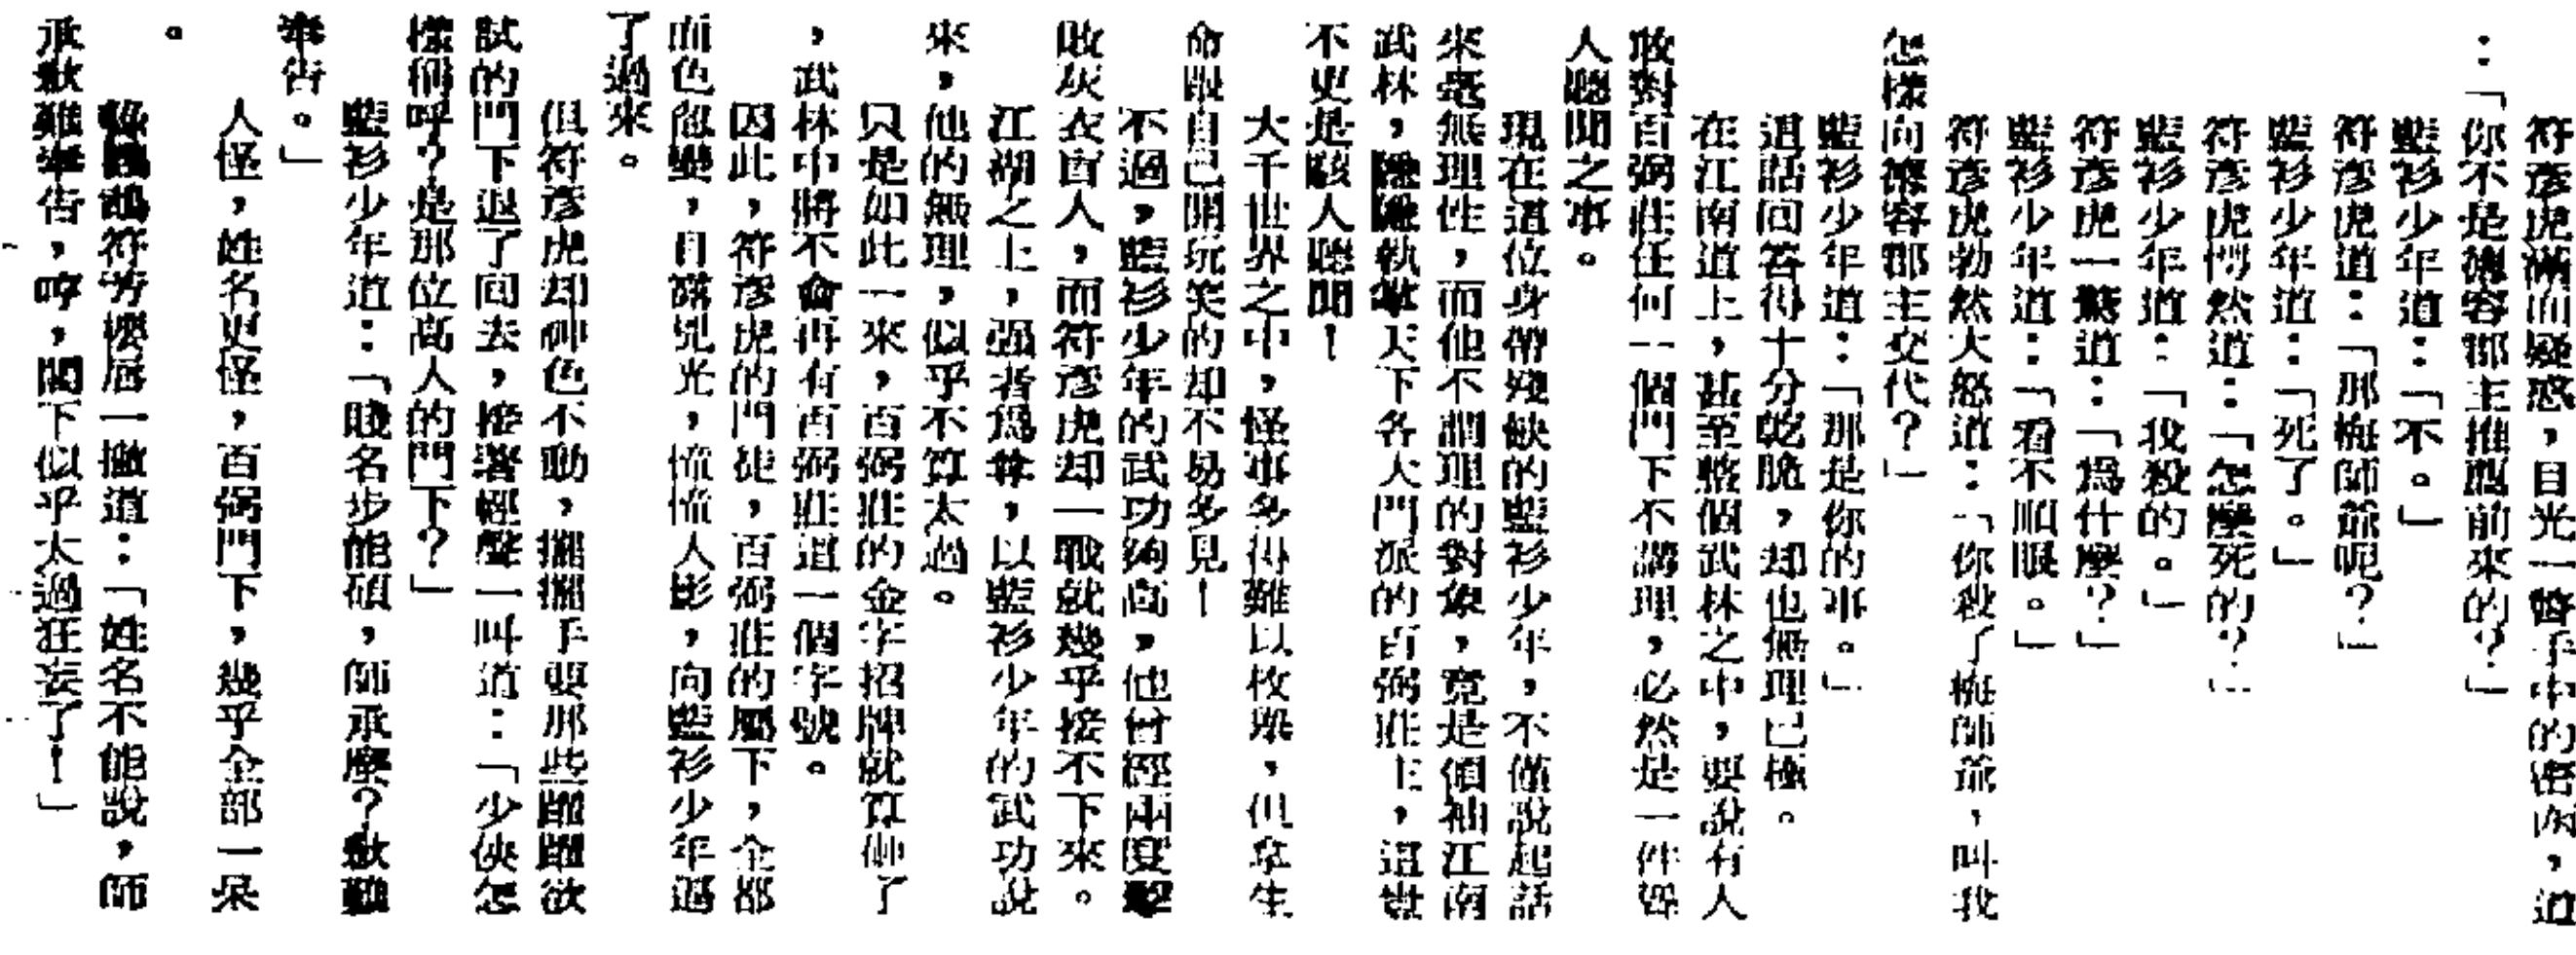 符彥虎滿面疑惑，目光一瞥手中的密函，道
：「你不是德容郡主推薦前來的？」
藍衫少年道：「不。」
符彥虎道：「那梅師爺呢？」
藍衫少年道：「死了。」
符彥虎愕然道：「怎麼死的？」
藍衫少年道：「我殺的。」
符彥虎一驚道：「爲什麼？」
藍衫少年道：「看不順眼。」
符彥虎勃然大怒道：「你殺了梅師爺，叫我
怎樣向德容郡主交代？」
藍衫少年道：「那是你的事。」
這話回答得十分乾脆，却也無理已極。
在江南道上，甚至整個武林之中，要說有人
敢對百弼莊任何一個門下不講理，必然是一件聳
人聽聞之事。
現在這位身帶殘缺的藍衫少年，不僅說起話
來毫無理性，而他不講理的對象，竟是領袖江南
武林，隱隱執掌天下各大門派的百弼莊主，這豈
不更是駭人聽聞！
大千世界之中，怪事多得難以枚舉，但拿生
命跟自己開玩笑的却不易多見！
不過，藍衫少年的武功夠高，他曾經兩度擊
敗灰衣盲人，而符彥虎却一戰就幾乎接不下來。
江湖之上，强者爲尊，以藍衫少年的武功說
來，他的無理，似乎不算太過。
只是如此一來，百弼莊的金字招牌就算砸了
，武林中將不會再有百弼莊這一個字號。
因此，符彥虎的門徒，百弼莊的屬下，全都
面色忽變，目露兇光，憧憧人影，向藍衫少年逼
了過來。
但符彥虎却神色不動，擺擺手要那些躍躍欲
試的門下退了回去，接著輕聲一叫道：「少俠怎
樣稱呼？是那位高人的門下？」
藍衫少年道：「賤名步能碩，師承麼？歉難
奉告。」
人怪，姓名更怪，百弼門下，幾乎全部一呆
。
符芳櫻唇一撇道：「姓名不能說，師
承歉難奉告，哼，閣下似乎太過狂妄了！」